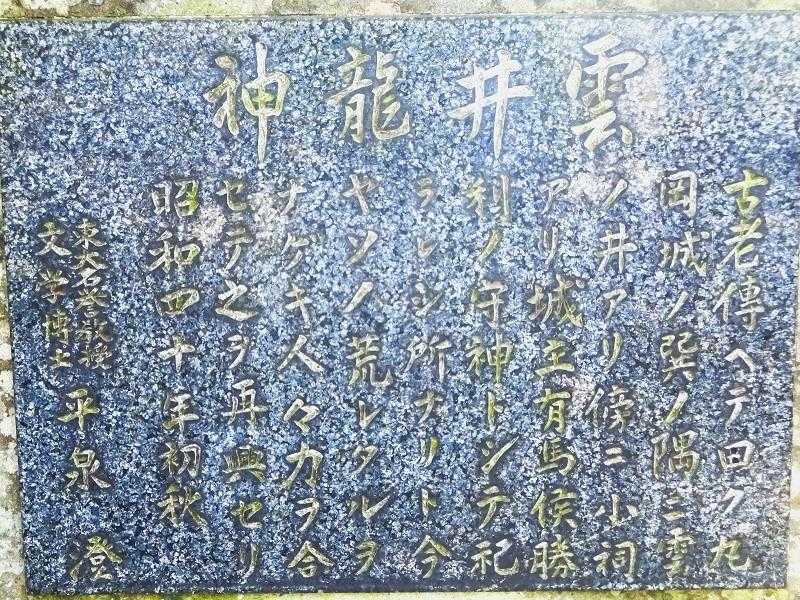 雲井龍神
古老傳ヘテ曰ク丸
岡城ノ巽ノ隅ニ雲
ノ井アリ傍ニ小祠
アリ城主有馬侯勝
利ノ守神トシテ祀
ラレシ所ナリト今
ヤソノ荒レタルヲ
ナゲキ人々力ヲ合
セテ之ヲ再興セリ
昭和四十年初秋
東大名誉教授
文学博士
平泉澄